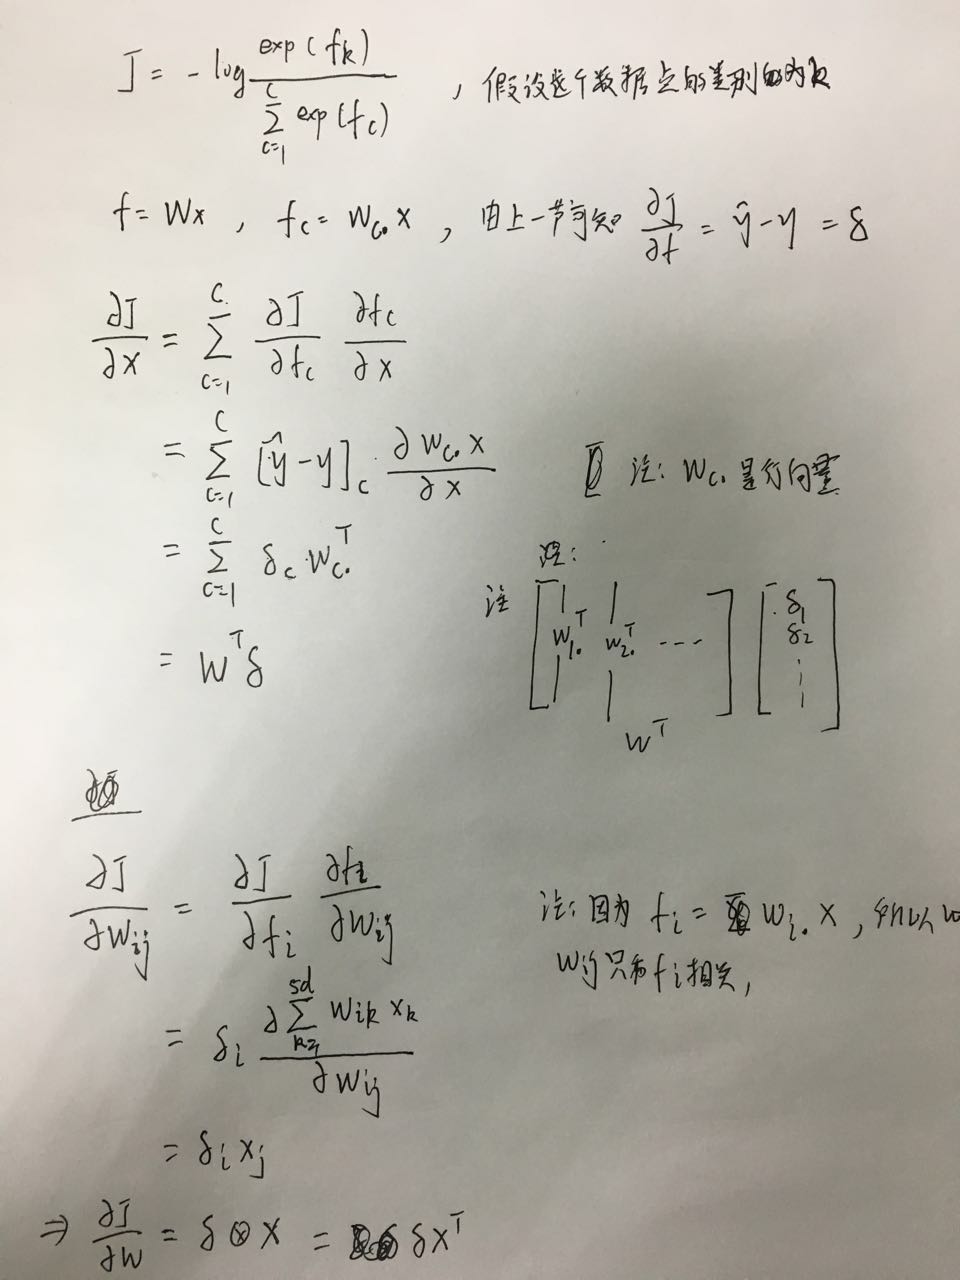 J = - log exp(f_k) / Σ_{c=1}^{C} exp(f_c) , 假设这个数据点的类别为k
f = Wx , f_c = W_{c·} x , 由上一节可知 ∂J/∂f = ŷ - y = δ
∂J/∂x = Σ_{c=1}^{C} ∂J/∂f_c ∂f_c/∂x
= Σ_{c=1}^{C} [ŷ - y]_c ∂W_{c·} x / ∂x 注: W_{c·} 是行向量
= Σ_{c=1}^{C} δ_c W_{c·}^T
注:
注 [ W_{1·}^T W_{2·}^T --- ] [ δ_1 δ_2 ⋮ ]
= W^T δ
W^T
∂J/∂W_{ij} = ∂J/∂f_i ∂f_i/∂W_{ij} 注: 因为 f_i = W_{i·} x , 所以
W_{ij} 只和 f_i 相关,
= δ_i ∂Σ_{k=1}^{sd} W_{ik} x_k / ∂W_{ij}
= δ_i x_j
⇒ ∂J/∂W = δ ⊗ x = δx^T